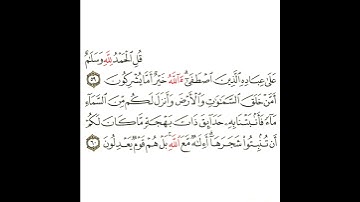 قُلِ ٱلْحَمْدُ لِلَّهِ وَسَلَٰمٌ
عَلَىٰ عِبَادِهِ ٱلَّذِينَ ٱصْطَفَىٰٓ ءَآللَّهُ خَيْرٌ أَمَّا يُشْرِكُونَ ٥٩
أَمَّنْ خَلَقَ ٱلسَّمَٰوَٰتِ وَٱلْأَرْضَ وَأَنزَلَ لَكُم مِّنَ ٱلسَّمَآءِ
مَآءً فَأَنۢبَتْنَا بِهِۦ حَدَآئِقَ ذَاتَ بَهْجَةٍ مَّا كَانَ لَكُمْ
أَن تُنۢبِتُوا۟ شَجَرَهَآ أَءِلَٰهٌ مَّعَ ٱللَّهِ بَلْ هُمْ قَوْمٌ يَعْدِلُونَ ٦٠